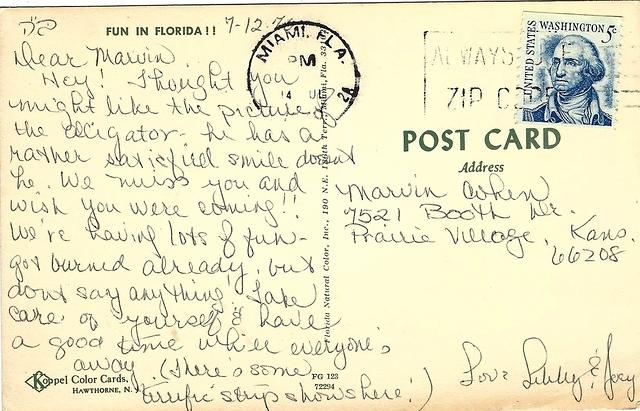 FUN IN FLORIDA!!
7-12-
Dear Marvin,
Hey! Thought you
might like the picture of
the alligator - he has a
rather satisfied smile doesn't
he. We miss you and
wish you were coming!!
We're having lots of fun -
got burned already, but
dont say anything! Take
care of yourself & have
a good time while everyone's
away. (There's some
terrific strip shows here!)
Love Libby & Joey
Koppel Color Cards,
HAWTHORNE, N.
FG 123
72294
Florida Natural Color, Inc., 190 N.E. Terr., Miami, Fla. 33
MIAMI, FLA.
PM
14
2A
ALWAYS USE
ZIP CODE
UNITED STATES
WASHINGTON 5c
POST CARD
Address
Marvin Cohen
7521 Booth Dr.
Prairie Village, Kans.
66208